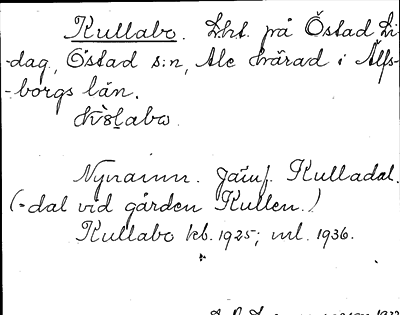 Kullabo. Lht. på Östad Li-
-dag, Östad s:n, Ale härad i Älfs-
-borgs län.
Nynamn. Jämf. Kulladal.
(-dal vid gården Kullen.)
Kullabo kb. 1925; ml. 1936.